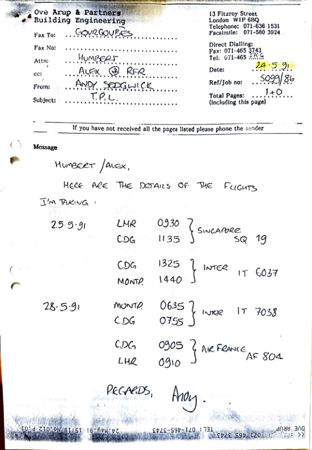 Ove Arup & Partners
Building Engineering
13 Fitzroy Street
London W1P 6BQ
Telephone: 071-636 1531
Facsimile: 071-580 3924
Fax To: GOURGOUPES
Fax No:
Direct Dialling:
Fax: 071-465 3743
Tel: 071-465
Attn: HUMBERT
cc: ALEX @ RFR
Date: 24-5-91
From: ANDY SEDGWICK
Ref/Job no: 5099/86
Subject: T.P.L.
Total Pages: 1+0
(including this page)
If you have not received all the pages listed please phone the sender
Message
HUMBERT / ALEX,
HERE ARE THE DETAILS OF THE FLIGHTS
I'M TAKING:
25-5-91 LHR 0930
CDG 1135
SINGAPORE
SQ 19
CDG 1325
MONTP. 1440
INTER IT 6037
28-5-91 MONTP. 0635
CDG 0755
INTER IT 7038
CDG 0905
LHR 0910
AIR FRANCE
AF 804
REGARDS, Andy.